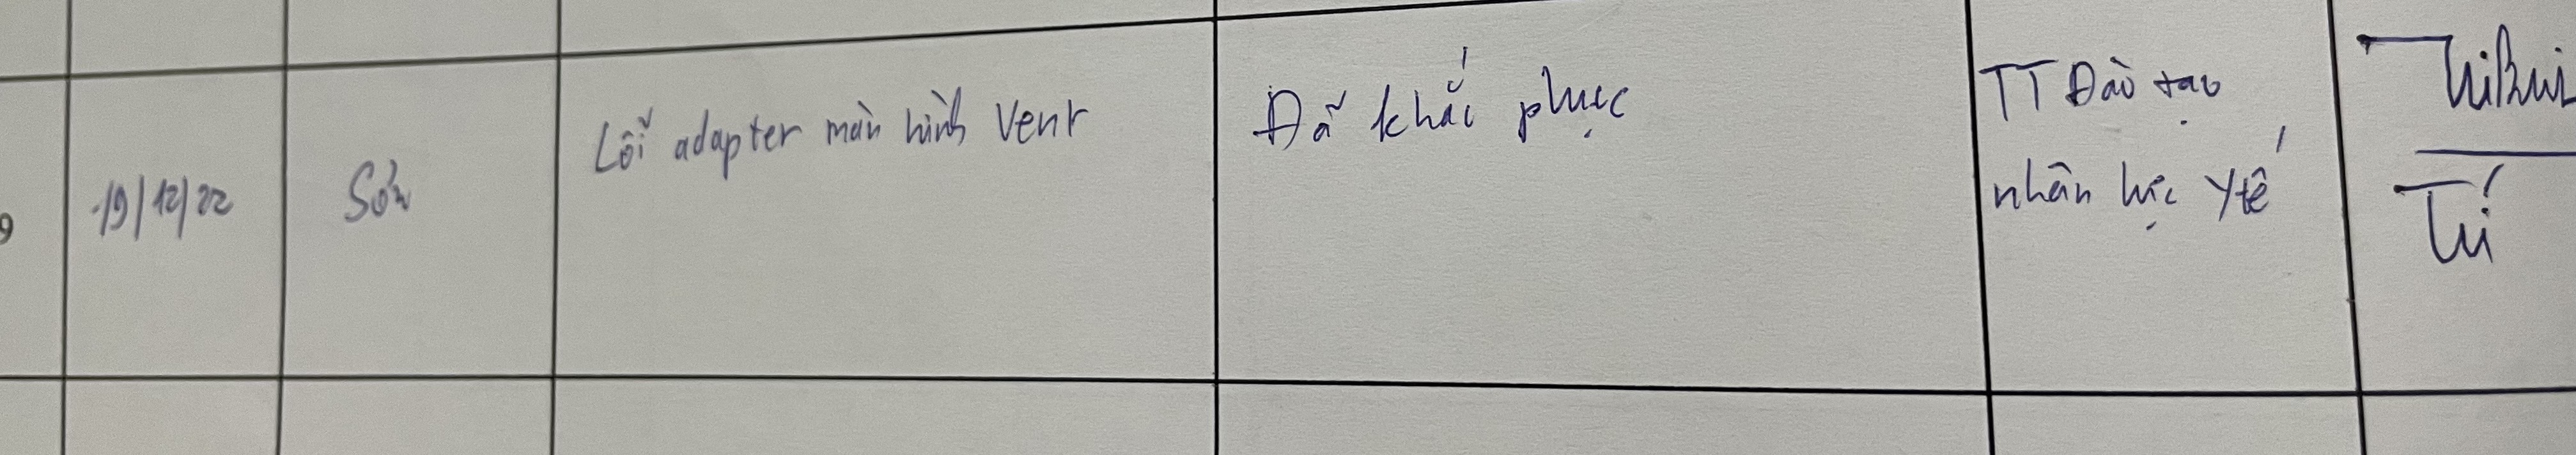 9
19/12/22
Sơn
Lỗi adapter màn hình Vent
Đã khắc phục
TT Đào tạo
nhân lực y tế
Tú